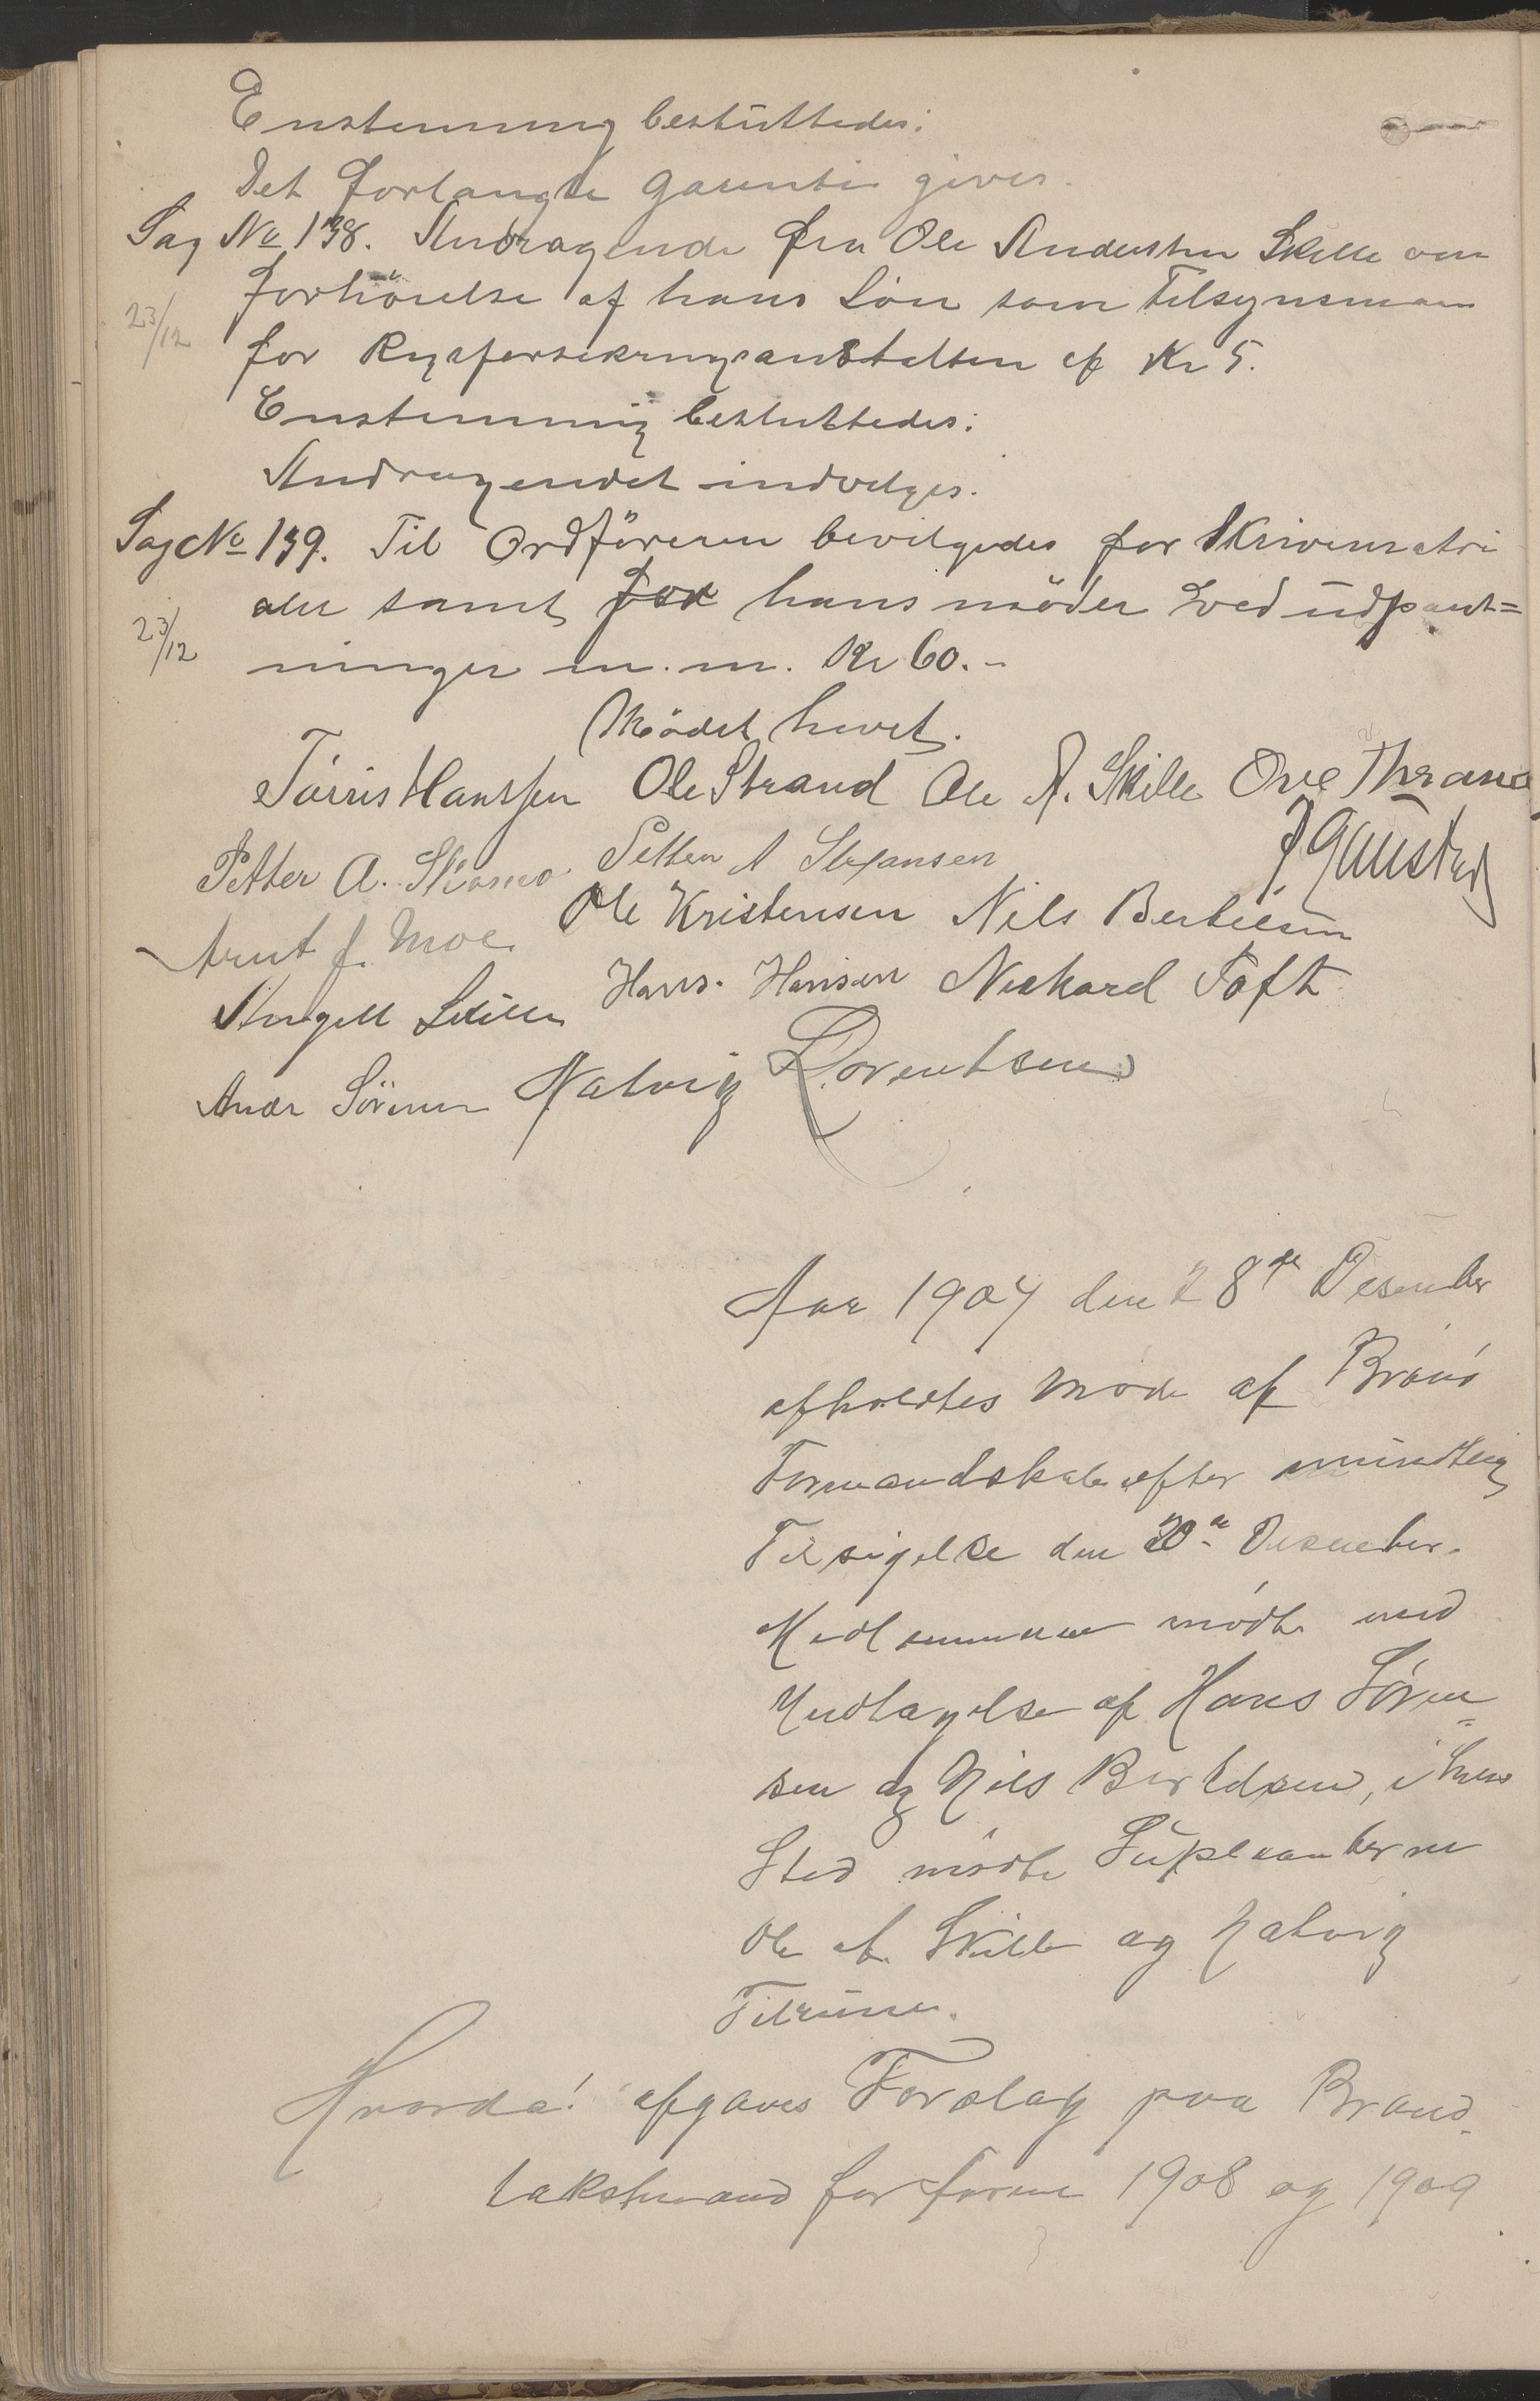 Enstemmig besluttedes:
Det forlangte garenti gives.
Sag No 138. Andragende fra Ole Andersen Skille om
forhöielse af hans Lön som Tilsynsman
23/12
for Rigsforsikringsanstalten af Kr 5.
Enstemmig besluttedes:
Andragendet indvilges.
Sag No 139. Til Ordföreren bevilgedes for Skrivematri
aler samt for hans möder ved udpant=
23/12
ninger m.m. Kr 60.-
Mödet hevet.
Törris Hanssen Ole Strand Ole A. Skille Ove Thrane
Petter A. Petter A Stefansen J Gaustad
Arnt J. Moe Ole Kristensen Nils Bertelsen
Angell Skille Hans. Hansen Nickard Toft
Andr Sörensen Natvig Lorentsen
Aar 1907 den 28de Desember
afholdtes möde af Brönö
Formandskab efter mundtlig
Tilsigelse den 20de Desember.
Medlemmerne mödte med
Undtagelse af Hans Sören=
sen og Nils Bertelsen, i hvis
Sted mödte Supleanterne
Ole A. Skille og Natvig
Tilrum.
Hvorda! afgaves Forslag paa Brand-
takstmænd for farene 1908 og 1909